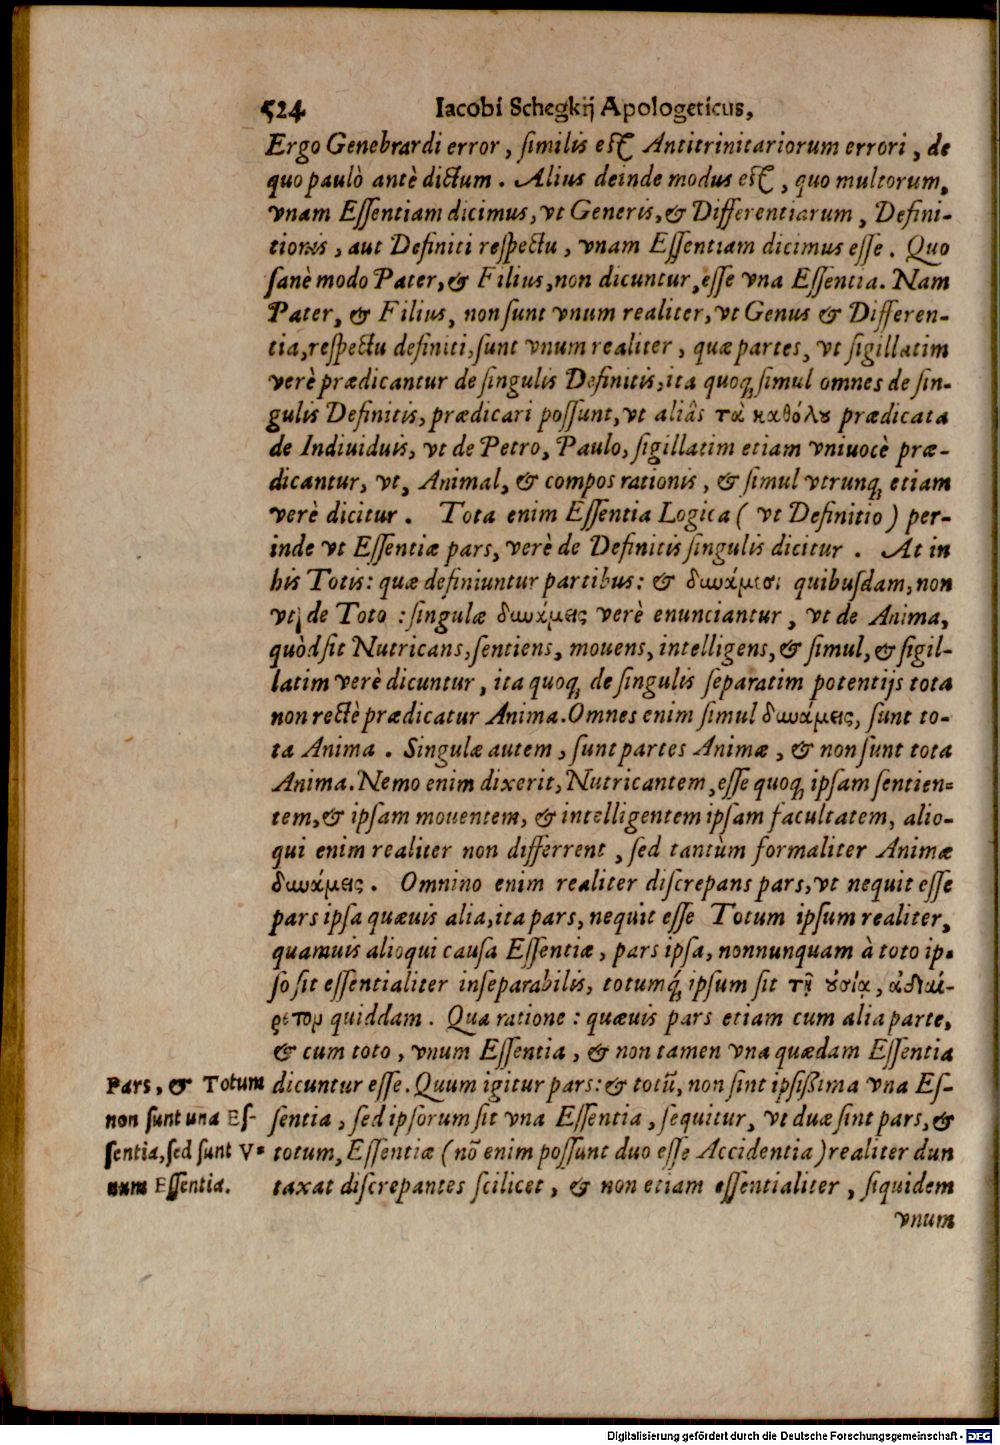 524 Iacobi Schegkij Apologeticus,
Ergo Genebrardi error, similis est Antitrinitariorum errori, de
quo paulò antè dictum. Alius deinde modus est, quo multorum,
vnam Essentiam dicimus, vt Generis, & Differentiarum, Defini-
tionis, aut Definiti respectu, vnam Essentiam dicimus esse. Quo
sanè modo Pater, & Filius, non dicuntur, esse vna Essentia. Nam
Pater, & Filius, non sunt vnum realiter, vt Genus & Differen-
tia, respectu definiti, sunt vnum realiter, quæ partes, vt sigillatim
verè prædicantur de singulis Definitis, ita quoq; simul omnes de sin-
gulis Definitis, prædicari possunt, vt aliâs τὰ καθόλου prædicata
de Indiuiduis, vt de Petro, Paulo, sigillatim etiam vniuocè præ-
dicantur, vt, Animal, & compos rationis, & simul vtrunq; etiam
verè dicitur. Tota enim Essentia Logica (vt Definitio) per-
inde vt Essentiæ pars, verè de Definitis singulis dicitur. At in
his Totis: quæ definiuntur partibus: & δυνάμεσι quibusdam, non
vt de Toto: singulæ δυνάμεις verè enunciantur, vt de Anima,
quòd sit Nutricans, sentiens, mouens, intelligens, & simul, & sigil-
latim verè dicuntur, ita quoq; de singulis separatim potentijs tota
non rectè prædicatur Anima. Omnes enim simul δυνάμεις, sunt to-
ta Anima. Singulæ autem, sunt partes Animæ, & non sunt tota
Anima. Nemo enim dixerit, Nutricantem, esse quoq; ipsam sentien=
tem, & ipsam mouentem, & intelligentem ipsam facultatem, alio-
qui enim realiter non differrent, sed tantùm formaliter Animæ
δυνάμεις. Omnino enim realiter discrepans pars, vt nequit esse
pars ipsa quæuis alia, ita pars, nequit esse Totum ipsum realiter,
quamuis alioqui causa Essentiæ, pars ipsa, nonnunquam à toto ip-
so sit essentialiter inseparabilis, totumq́; ipsum sit τῇ οὐσίᾳ, ἀδιαί-
ρετον quiddam. Qua ratione: quæuis pars etiam cum alia parte,
& cum toto, vnum Essentia, & non tamen vna quædam Essentia
dicuntur esse. Quum igitur pars: & totũ, non sint ipsißima vna Es-
sentia, sed ipsorum sit vna Essentia, sequitur, vt duæ sint pars, &
totum, Essentiæ (nõ enim possunt duo esse Accidentia) realiter dun
taxat discrepantes scilicet, & non etiam essentialiter, siquidem
vnum
Pars, & Totum
non sunt una Es-
sentia, sed sunt V=
num Essentia.
Digitalisierung gefördert durch die Deutsche Forschungsgemeinschaft - DFG